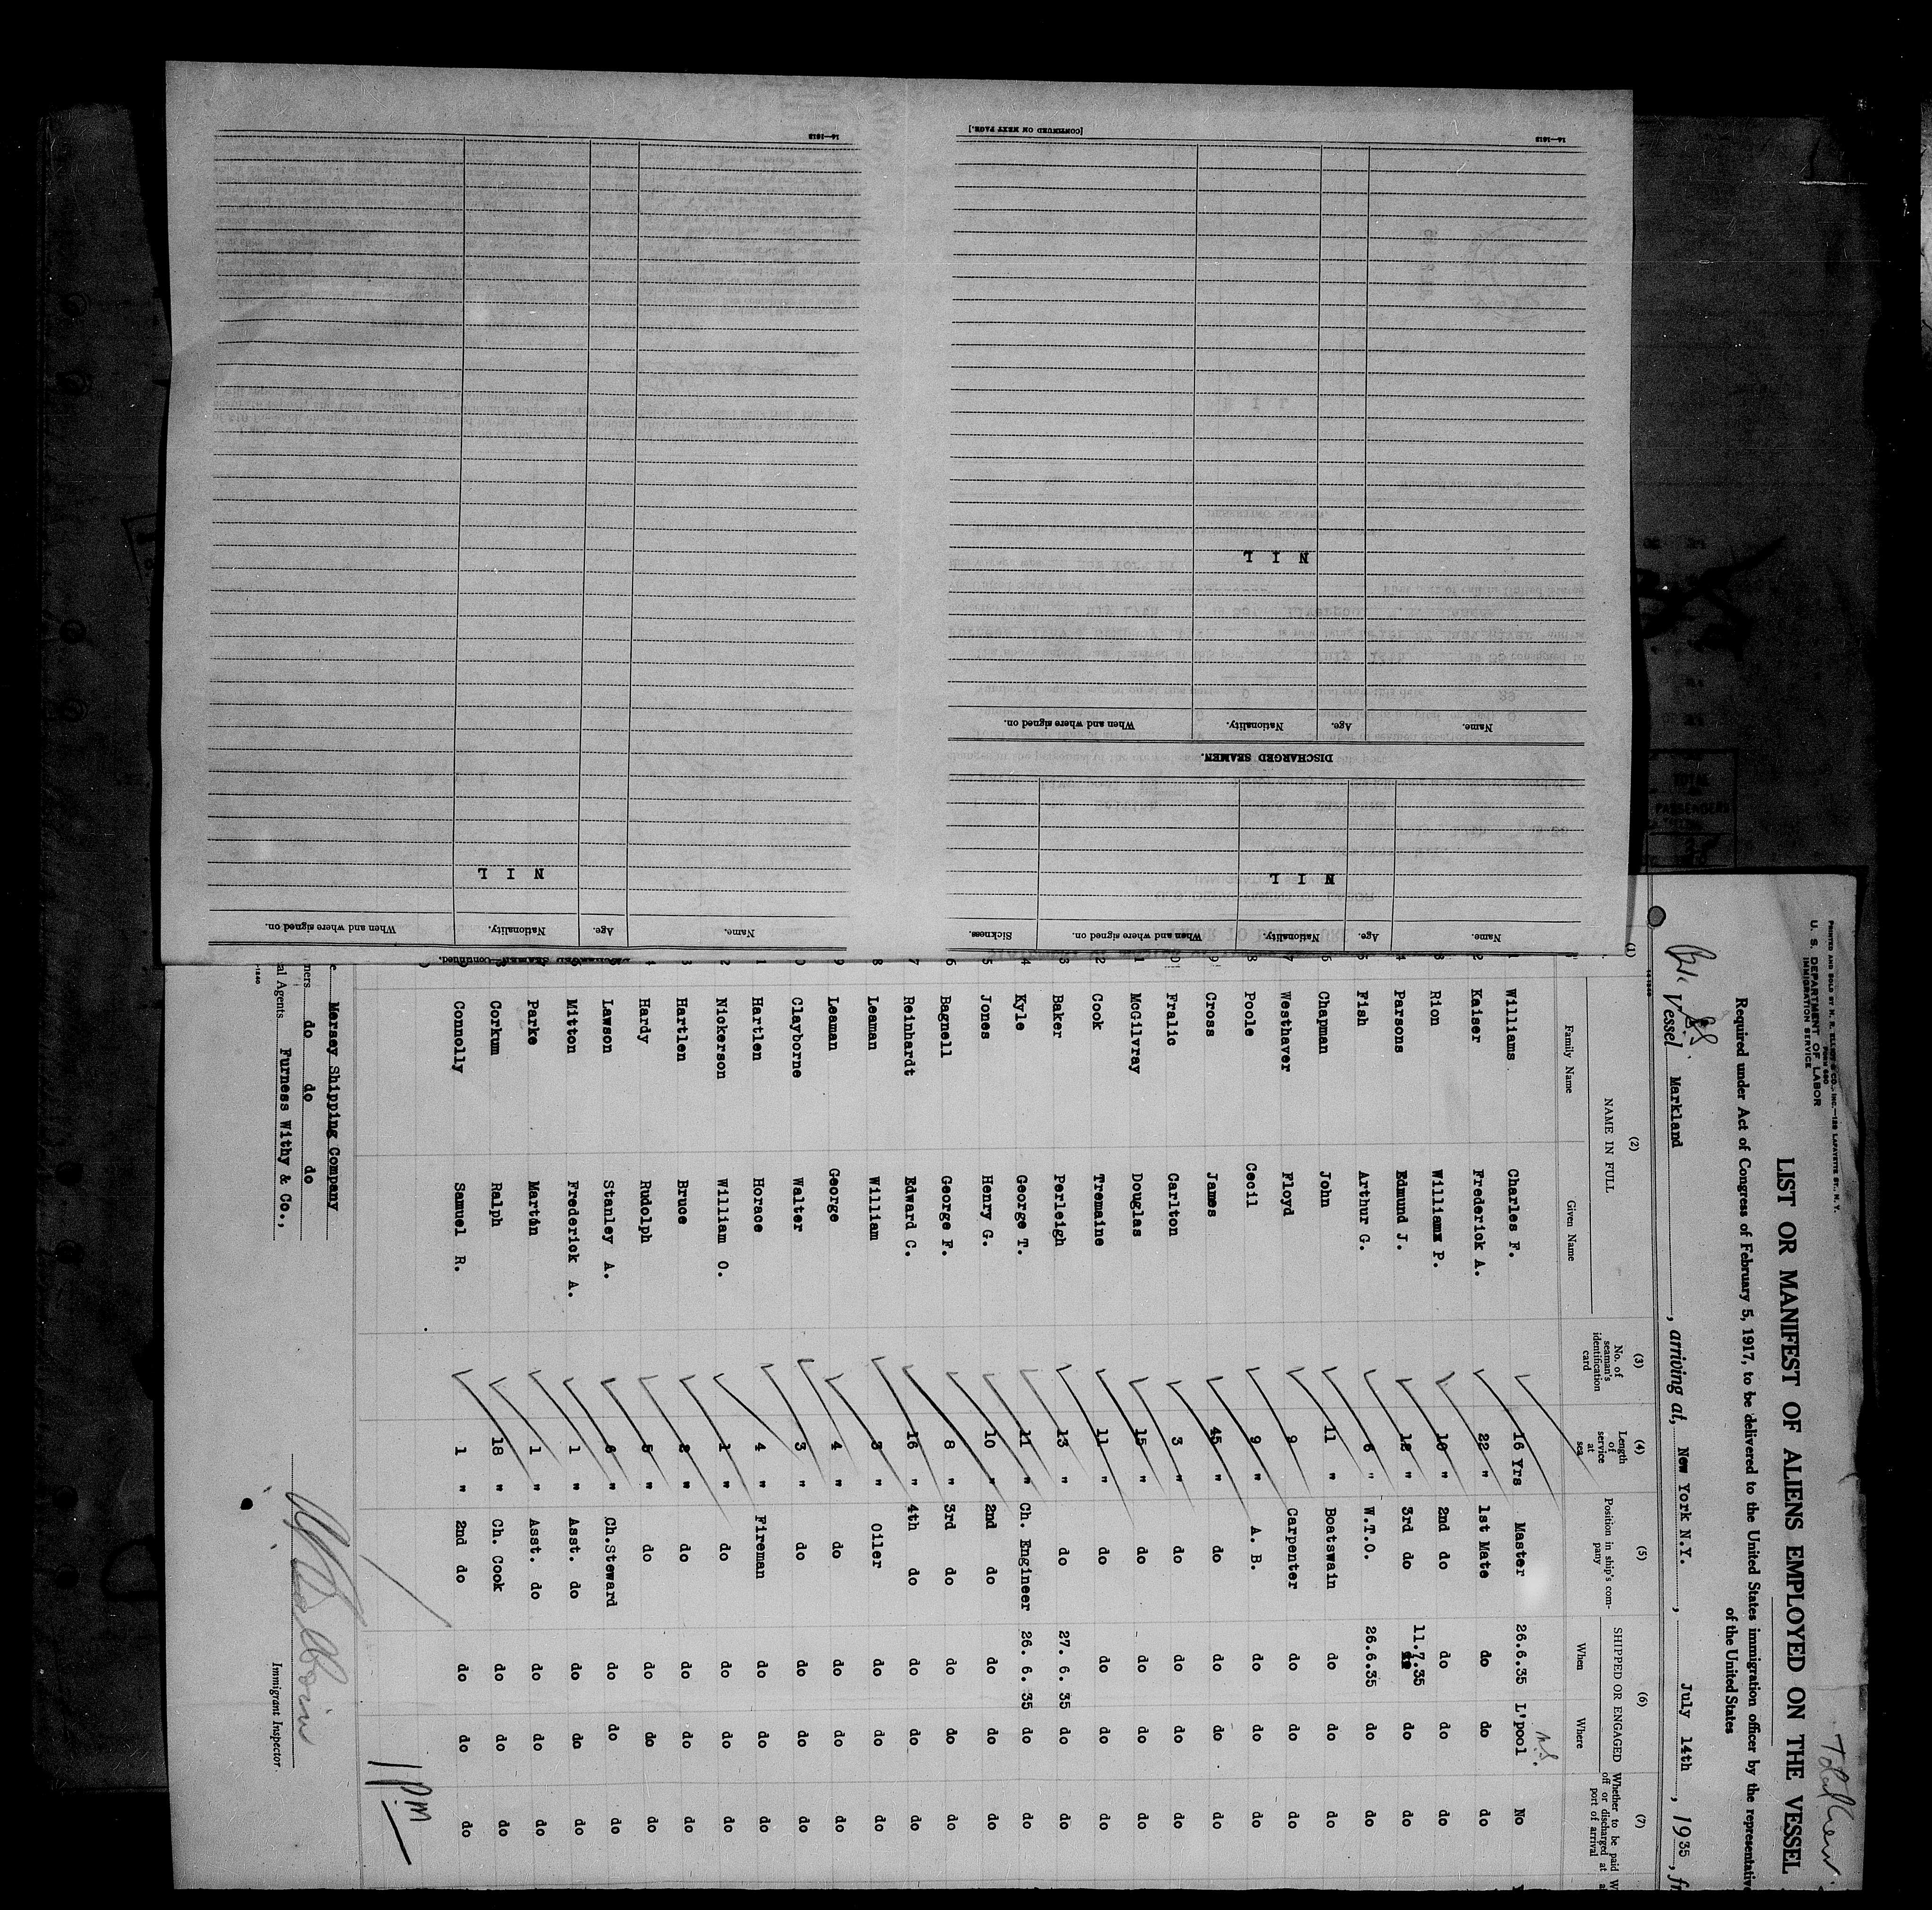 PRINTED AND SOLD BY M. R. ELLIOT & CO., INC.—129 LAFAYETTE ST., N.Y.
Form 680
U. S. DEPARTMENT OF LABOR
IMMIGRATION SERVICE
LIST OR MANIFEST OF ALIENS EMPLOYED ON THE VESSEL
Required under Act of Congress of February 5, 1917, to be delivered to the United States immigration officer by the representative
of the United States
Vessel Markland, arriving at, New York N.Y., July 14th, 1935, fr
(1) (2) (3) (4) (5) (6) (7)
NAME IN FULL No. of seaman's identification card Length of service at sea Position in ship's company SHIPPED OR ENGAGED Whether to be paid off or discharged at port of arrival
Family Name Given Name When Where
N.S.
1 Williams Charles F. 16 Yrs Master 26.6.35 L'pool No
2 Kaiser Frederick A. 22 " 1st Mate do do do
3 Rion Williamx P. 10 " 2nd do do do do
4 Parsons Edmund J. 12 " 3rd do 11.7.35 do do
5 Fish Arthur G. 6 " W.T.O. 26.6.35 do do
6 Chapman John 11 " Boatswain do do do
7 Westhaver Floyd 9 Carpenter do do do
8 Poole Cecil 9 " A. B. do do do
9 Cross James 45 " do do do do
0 Fralic Carlton 3 " do do do do
1 McGilvray Douglas 15 " do do do do
2 Cook Tremaine 11 " do do do do
3 Baker Perleigh 13 " do 27. 6. 35 do do
4 Kyle George T. 11 " Ch. Engineer 26. 6. 35 do do
5 Jones Henry G. 10 " 2nd do do do do
6 Bagnell George F. 8 " 3rd do do do do
7 Reinhardt Edward C. 16 " 4th do do do do
8 Leaman William 3 " Oiler do do do
9 Leaman George 4 " do do do do
0 Clayborne Walter 3 " do do do do
1 Hartlen Horace 4 " Fireman do do do
2 Nickerson William O. 1 " do do do do
3 Hartlen Bruce 2 " do do do do
4 Hardy Rudolph 5 " do do do do
5 Lawson Stanley A. 6 " Ch.Steward do do do
6 Mitton Frederick A. 1 " Asst. do do do do
7 Parke Martin 1 " Asst. do do do do
8 Corkum Ralph 18 " Ch. Cook do do do
9 Connolly Samuel R. 1 " 2nd do do do do
1 PM
Mersey Shipping Company
ners do do do
al Agents Furness Withy & Co.,
Immigrant Inspector.
Name. Age. Nationality. When and where signed on. Sickness.
N I L
DISCHARGED SEAMEN.
Name. Age. Nationality. When and where signed on.
N I L
14—1613
[CONTINUED ON NEXT PAGE.]
SEAMEN—Continued.
Name. Age. Nationality. When and where signed on.
N I L
14—1613
TOTAL
PASSENGERS